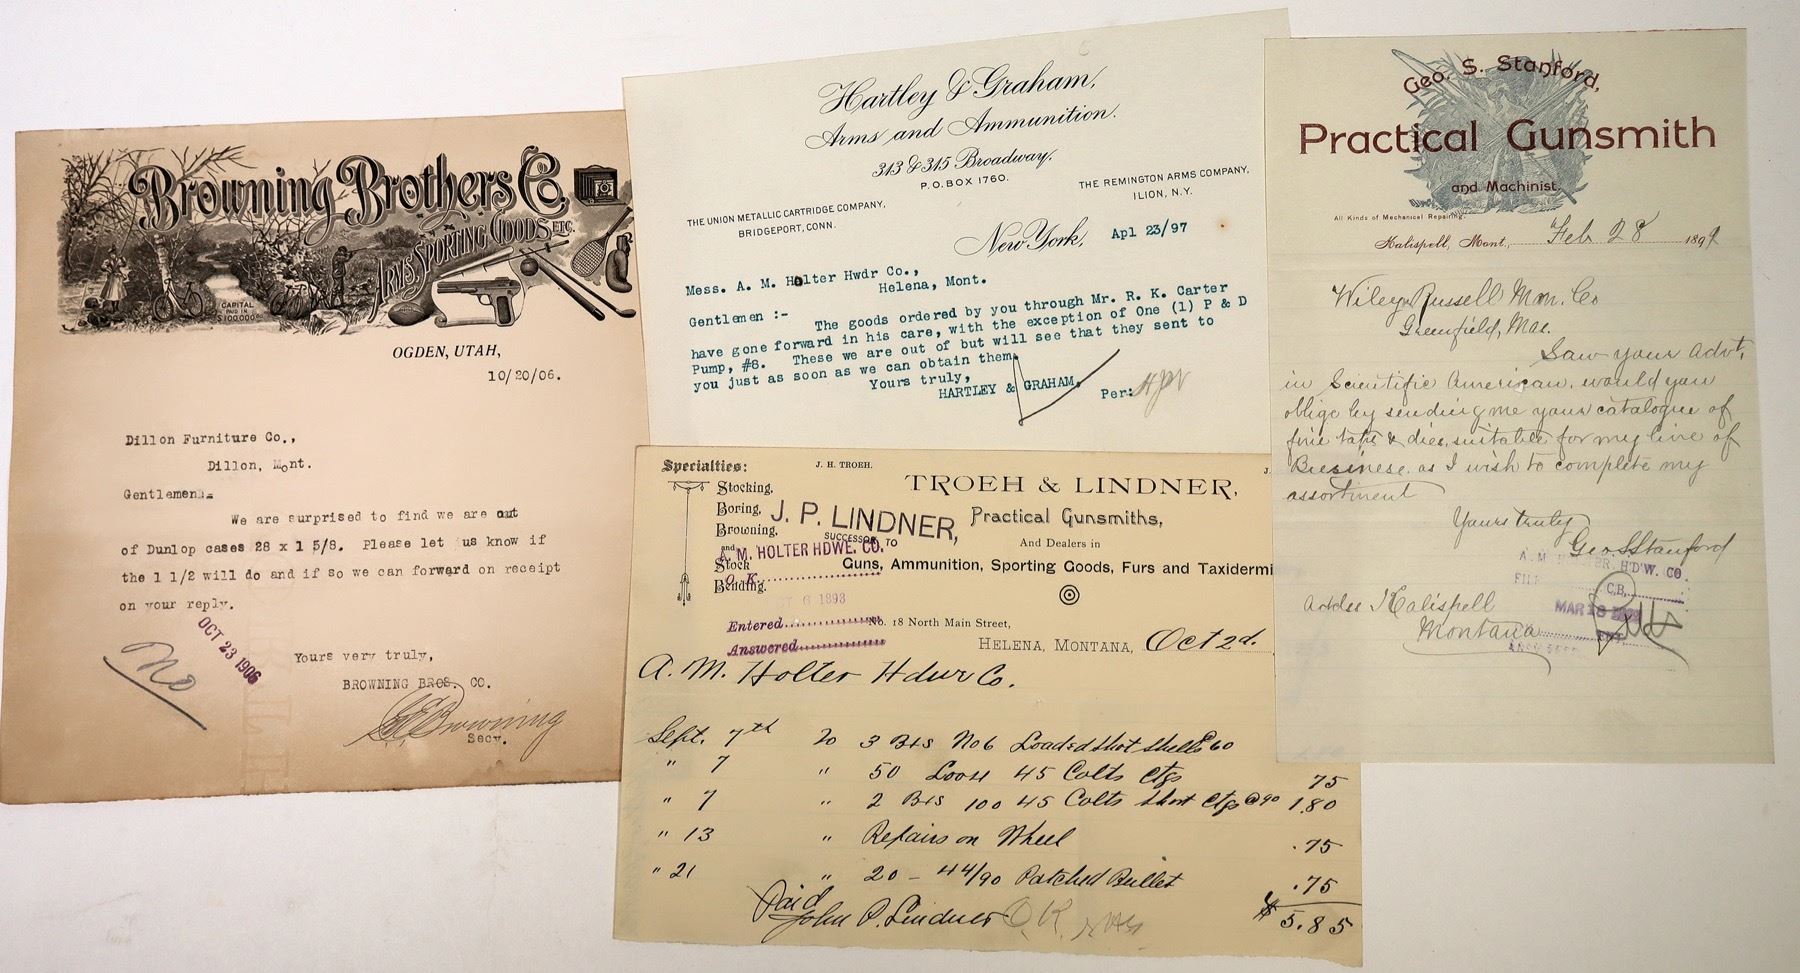 Browning Brothers Co.
Arms, Sporting Goods, Etc.
CAPITAL
PAID IN
$100,000.00
OGDEN, UTAH,
10/20/06.
Dillon Furniture Co.,
Dillon, Mont.
Gentlemen:-
We are surprised to find we are out
of Dunlop cases 28 x 1 5/8. Please let us know if
the 1 1/2 will do and if so we can forward on receipt
on your reply.
No
OCT 23 1906
Yours very truly,
BROWNING BROS. CO.
Browning
Secy.
Hartley & Graham,
Arms and Ammunition.
313 & 315 Broadway.
P.O. BOX 1760.
THE UNION METALLIC CARTRIDGE COMPANY,
BRIDGEPORT, CONN.
THE REMINGTON ARMS COMPANY,
ILION, N.Y.
New York, Apl 23/97
Mess. A. M. Holter Hwdr Co.,
Helena, Mont.
Gentlemen :-
The goods ordered by you through Mr. R. K. Carter
have gone forward in his care, with the exception of One (1) P & D
Pump, #8. These we are out of but will see that they sent to
you just as soon as we can obtain them.
Yours truly,
HARTLEY & GRAHAM,
Per:
Specialties:
Stocking,
Boring,
Browning,
and
Stock
Bending.
J. H. TROEH.
J.
TROEH & LINDNER,
J. P. LINDNER,
SUCCESSOR TO
Practical Gunsmiths,
And Dealers in
Guns, Ammunition, Sporting Goods, Furs and Taxidermi
A. M. HOLTER HDWE. CO.
O. K.
6 1893
Entered
Answered
No. 18 North Main Street,
HELENA, MONTANA, Oct 2d.
A. M. Holter Hdwr Co.
Sept. 7th 20 3 Bxs No 6 Loaded shot shells 60
" 7 " 50 Loose 45 Colts Ctgs 75
" 7 " 2 Bxs 100 45 Colts Short Ctgs @90 1.80
" 13 " Repairs on Wheel .75
" 21 " 20 - 44/90 Patched Bullet .75
$5.85
Paid
John P. Lindner O.K.
Geo. S. Stanford,
Practical Gunsmith
and Machinist.
All Kinds of Mechanical Repairing.
Kalispell, Mont., Feb 28 1899
Wiley & Russell Mfn. Co
Greenfield, Mas.
Saw your advt,
in Scientific American, would you
oblige by sending me your catalogue of
fine taps & dies, suitable for my line of
Business. as I wish to complete my
assortment
Yours truly
Geo S Stanford
A. M. HOLTER H'D'W. CO.
C.B.
MAR 18
ENT.
Address Kalispell
Montana